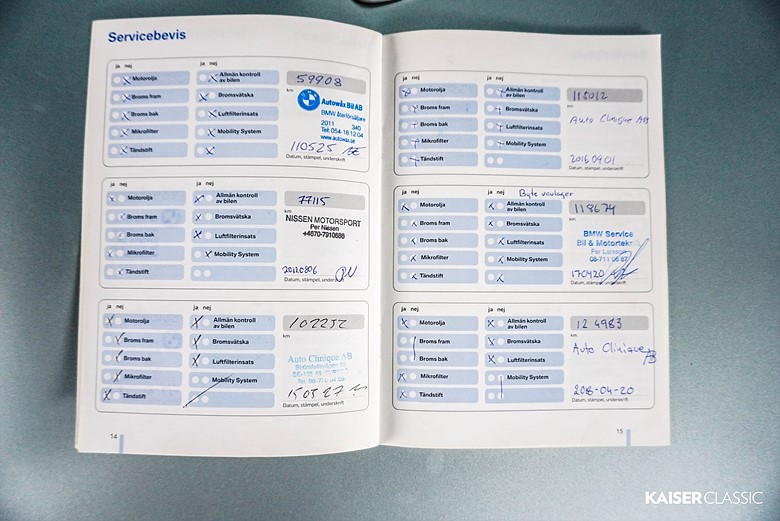 Servicebevis
ja nej ja nej
Motorolja Allmän kontroll av bilen 59908
Broms fram Bromsvätska km
Autowåx Bil AB
BMW återförsäljare
2011 340
Tel: 054-18 12 04
www.autowax.se
Broms bak Luftfilterinsats
Mikrofilter Mobility System 110525
Tändstift Datum, stämpel, underskrift
ja nej ja nej
Motorolja Allmän kontroll av bilen 77115
Broms fram Bromsvätska km
NISSEN MOTORSPORT
Per Nissen
+4670-7910686
Broms bak Luftfilterinsats
Mikrofilter Mobility System
Tändstift 20120806
Datum, stämpel, underskrift
ja nej ja nej
Motorolja Allmän kontroll av bilen 102252
Broms fram Bromsvätska km
Auto Clinique AB
Broms bak Luftfilterinsats
Mikrofilter Mobility System 150327
Tändstift Datum, stämpel, underskrift
14
ja nej ja nej
Motorolja Allmän kontroll av bilen 115012
Broms fram Bromsvätska km
Auto Clinique AB
Broms bak Luftfilterinsats
Mikrofilter Mobility System
Tändstift 20160901
Datum, stämpel, underskrift
ja nej ja nej Byte
Motorolja Allmän kontroll av bilen 118674
Broms fram Bromsvätska km
BMW Service
Bil & Motortekn
Per Larsson
08-711 06 87
Broms bak Luftfilterinsats
Mikrofilter Mobility System
Tändstift 170420
Datum, stämpel, underskrift
ja nej ja nej
Motorolja Allmän kontroll av bilen 124983
Broms fram Bromsvätska km
Auto Clinique AB
Broms bak Luftfilterinsats
Mikrofilter Mobility System
Tändstift 2018-04-20
Datum, stämpel, underskrift
15
KAISER CLASSIC